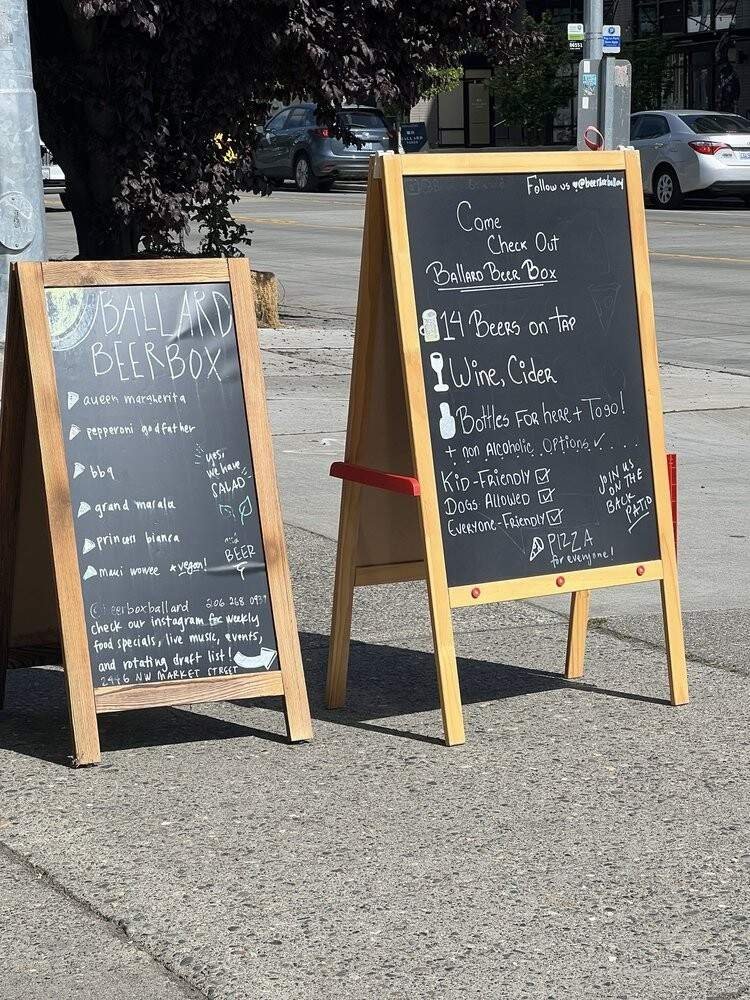 BALLARD
BEERBOX
queen margherita
pepperoni godfather
bbq
grand marala
princess bianca
maui wowee *vegan!
yes,
we have
SALAD
BEER
@beerboxballard 206 268
check our instagram for weekly
food specials, live music, events,
and rotating draft list!
NW MARKET STREET
Follow us
Come
Check Out
Ballard Beer Box
14 Beers on Tap
Wine, Cider
Bottles For here + To go!
+ non Alcoholic Options ✓ . . . .
Kid-Friendly ☑
Dogs Allowed ☑
Everyone-Friendly ☑
JOIN US
ON THE
BACK
PATIO
PIZZA
for everyone!